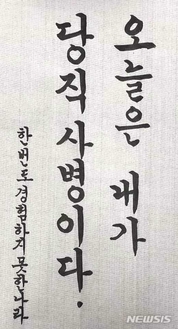 오늘은 내가
당직 사병이다.
한번도 경험하지 못한 나라
NEWSIS